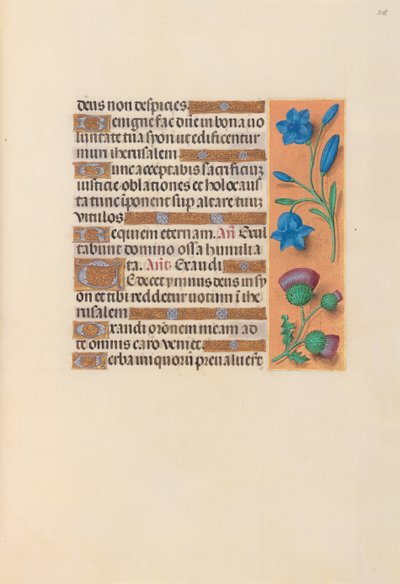 deus non despicies.
Benigne fac dñe in bona uo
luntate tua syon ut edificentur
muri iherusalem
Tunc acceptabis sacrificiũ
iusticie oblationes et holocaus
ta tunc ĩponent sup altare tuũ
vitulos
Requiem eternam. Añ. Exul
tabunt domino ossa humilia
ta. Añt. Exaudi
Te decet ymnus deus in sy
on et tibi reddetur uotum ĩ ihe
rusalem
Exaudi orõnem meam ad
te omnis caro veniet.
Verba iniquorũ preualuerũt